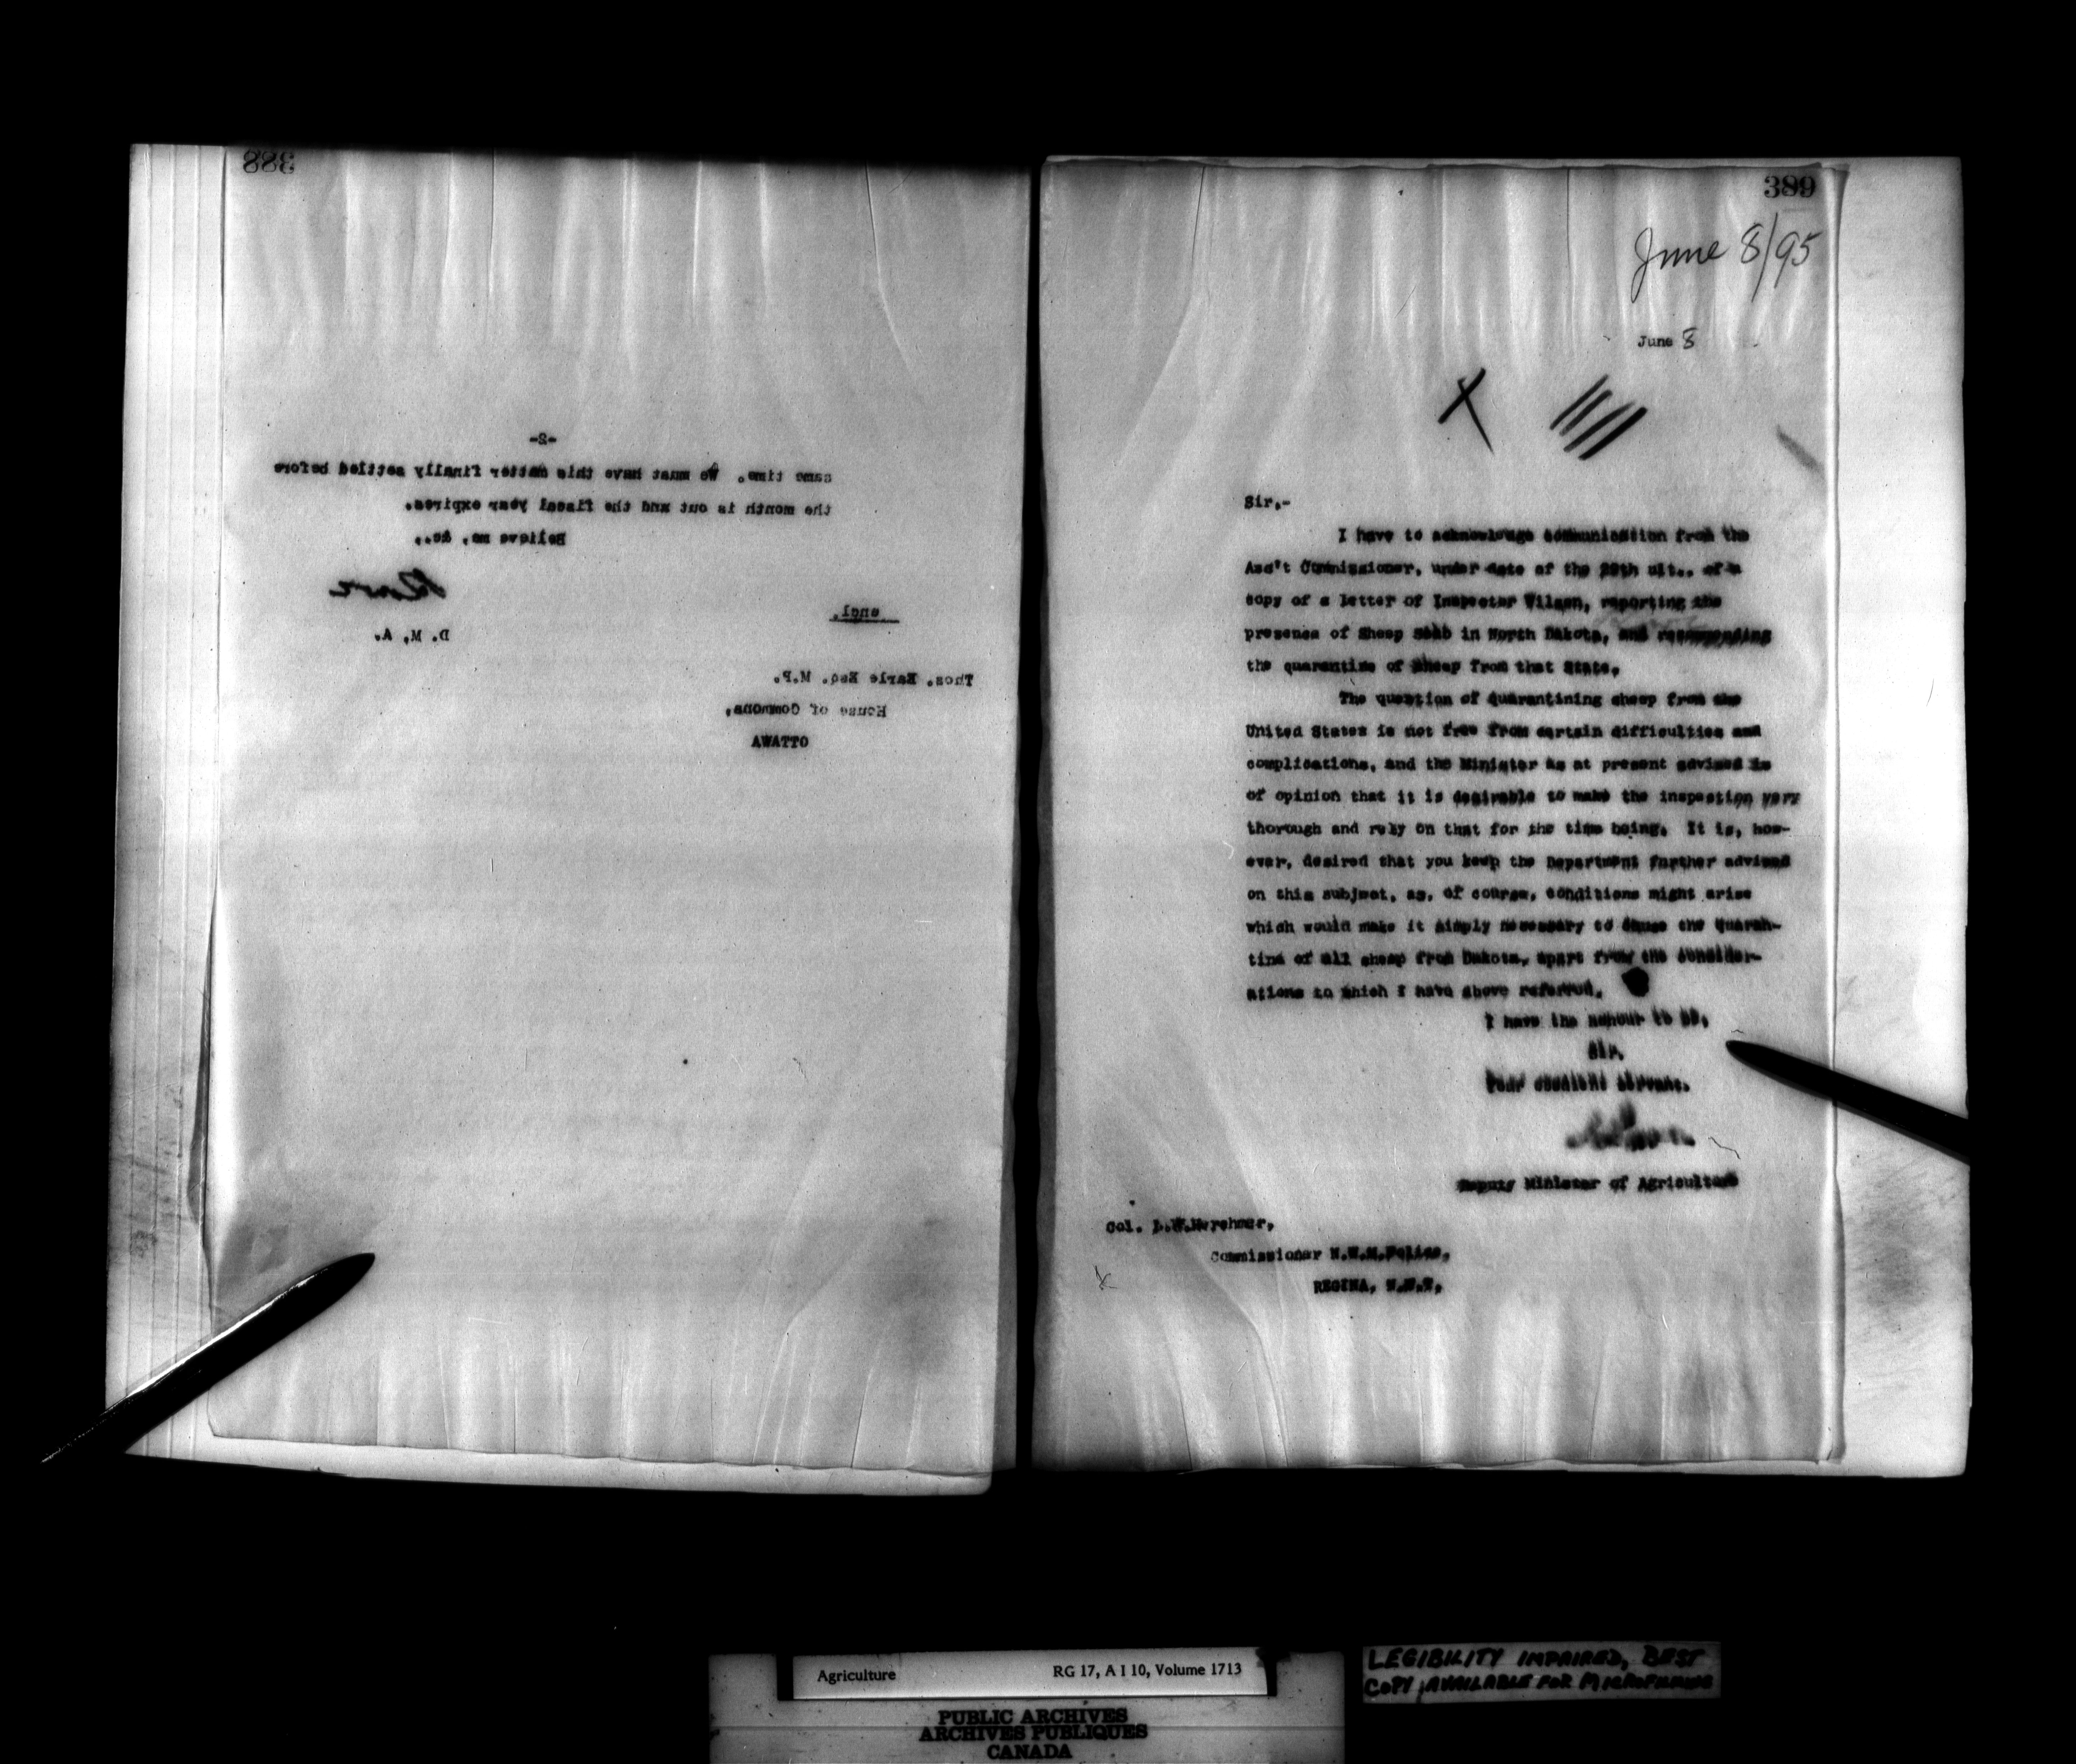 388
-2-
same time. We must have this matter finally settled before
the month is out and the fiscal year expires.
Believe me, &c.,
D. M. A.
encl.
Thos. Earle Esq. M.P.
House of Commons,
OTTAWA
389
June 8/95
June 8
Sir,-
I have to acknowledge communication from the
Ass't Commissioner, under date of the 29th ult., of a
copy of a letter of Inspector Wilson, reporting the
presence of Sheep Scab in North Dakota, and recommending
the quarantine of sheep from that State.
The question of quarantining sheep from the
United States is not free from certain difficulties and
complications, and the Minister as at present advised is
of opinion that it is desirable to make the inspection very
thorough and rely on that for the time being. It is, how-
ever, desired that you keep the Department further advised
on this subject, as, of course, conditions might arise
which would make it simply necessary to cause the quaran-
tine of all sheep from Dakota, apart from the consider-
ations to which I have above referred.
I have the honour to be,
Sir,
Your obedient servant.
Deputy Minister of Agriculture
Col. L.W.Herchmer,
Commissioner N.W.M.Police,
REGINA, N.W.T,
Agriculture RG 17, A I 10, Volume 1713
PUBLIC ARCHIVES
ARCHIVES PUBLIQUES
CANADA
LEGIBILITY IMPAIRED, BEST
COPY AVAILABLE FOR MICROFILMING